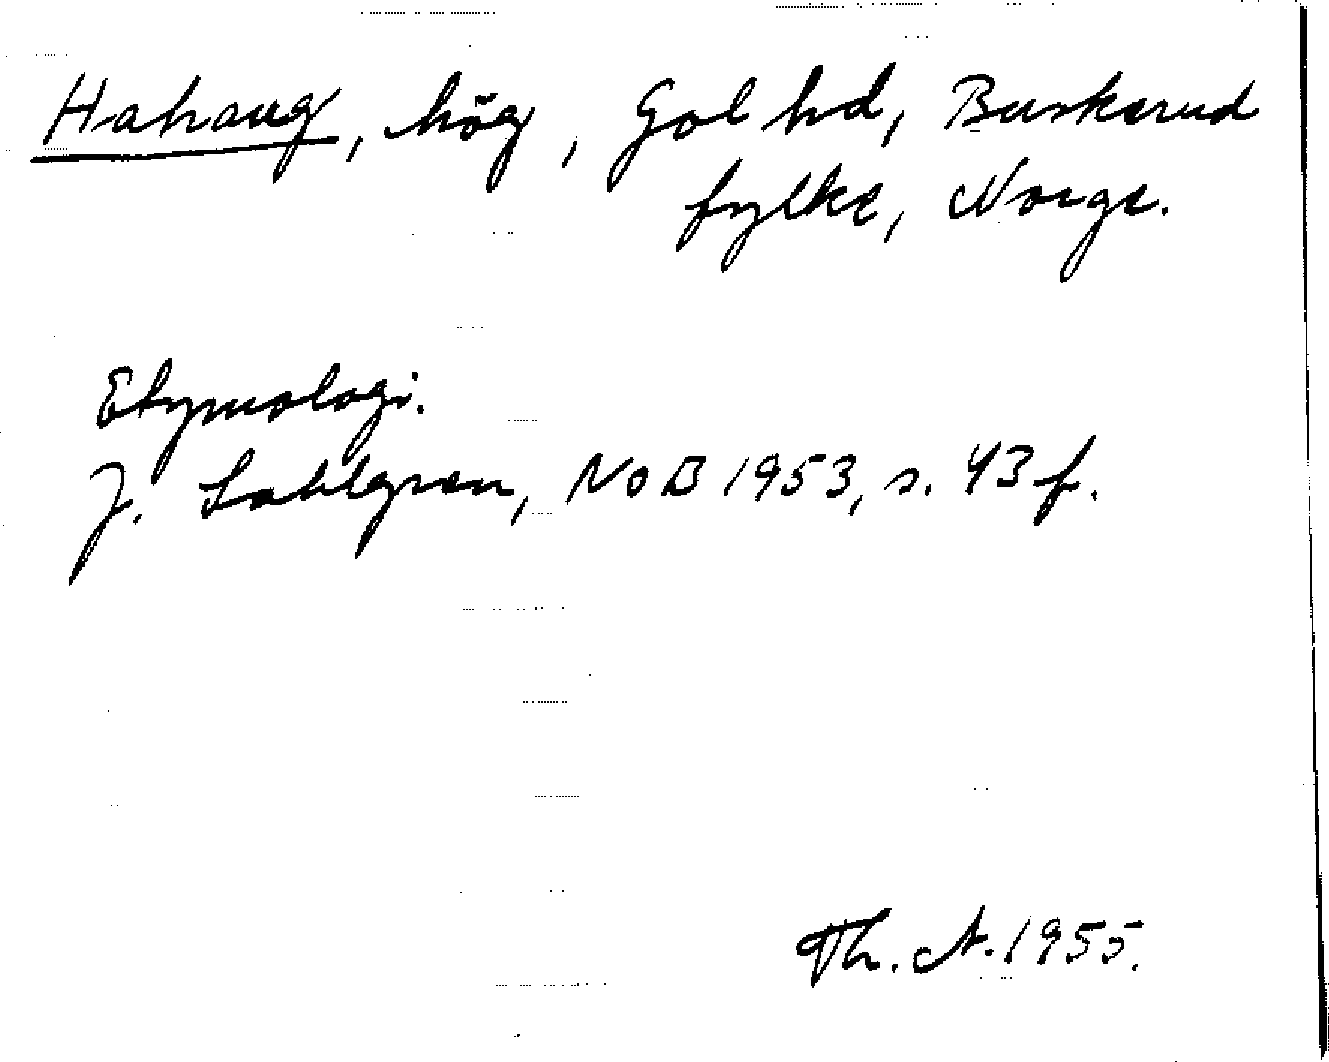 Hahaug, hög, Gol hd, Buskerud
fylke, Norge.
Etymologi.
J. Sahlgren, NoB 1953, s. 43 f.
Th. A. 1955.